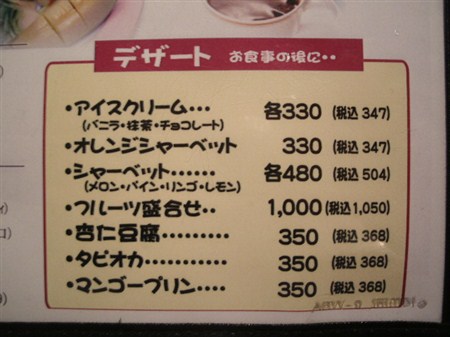 デザート お食事の後に・・
・アイスクリーム・・・ 各330 (税込 347)
(バニラ・抹茶・チョコレート)
・オレンジシャーベット 330 (税込 347)
・シャーベット・・・・・・ 各480 (税込 504)
(メロン・パイン・リンゴ・レモン)
・フルーツ盛合せ・・ 1,000 (税込1,050)
・杏仁豆腐・・・・・・・・・ 350 (税込 368)
・タピオカ・・・・・・・・・ 350 (税込 368)
・マンゴープリン・・・・ 350 (税込 368)